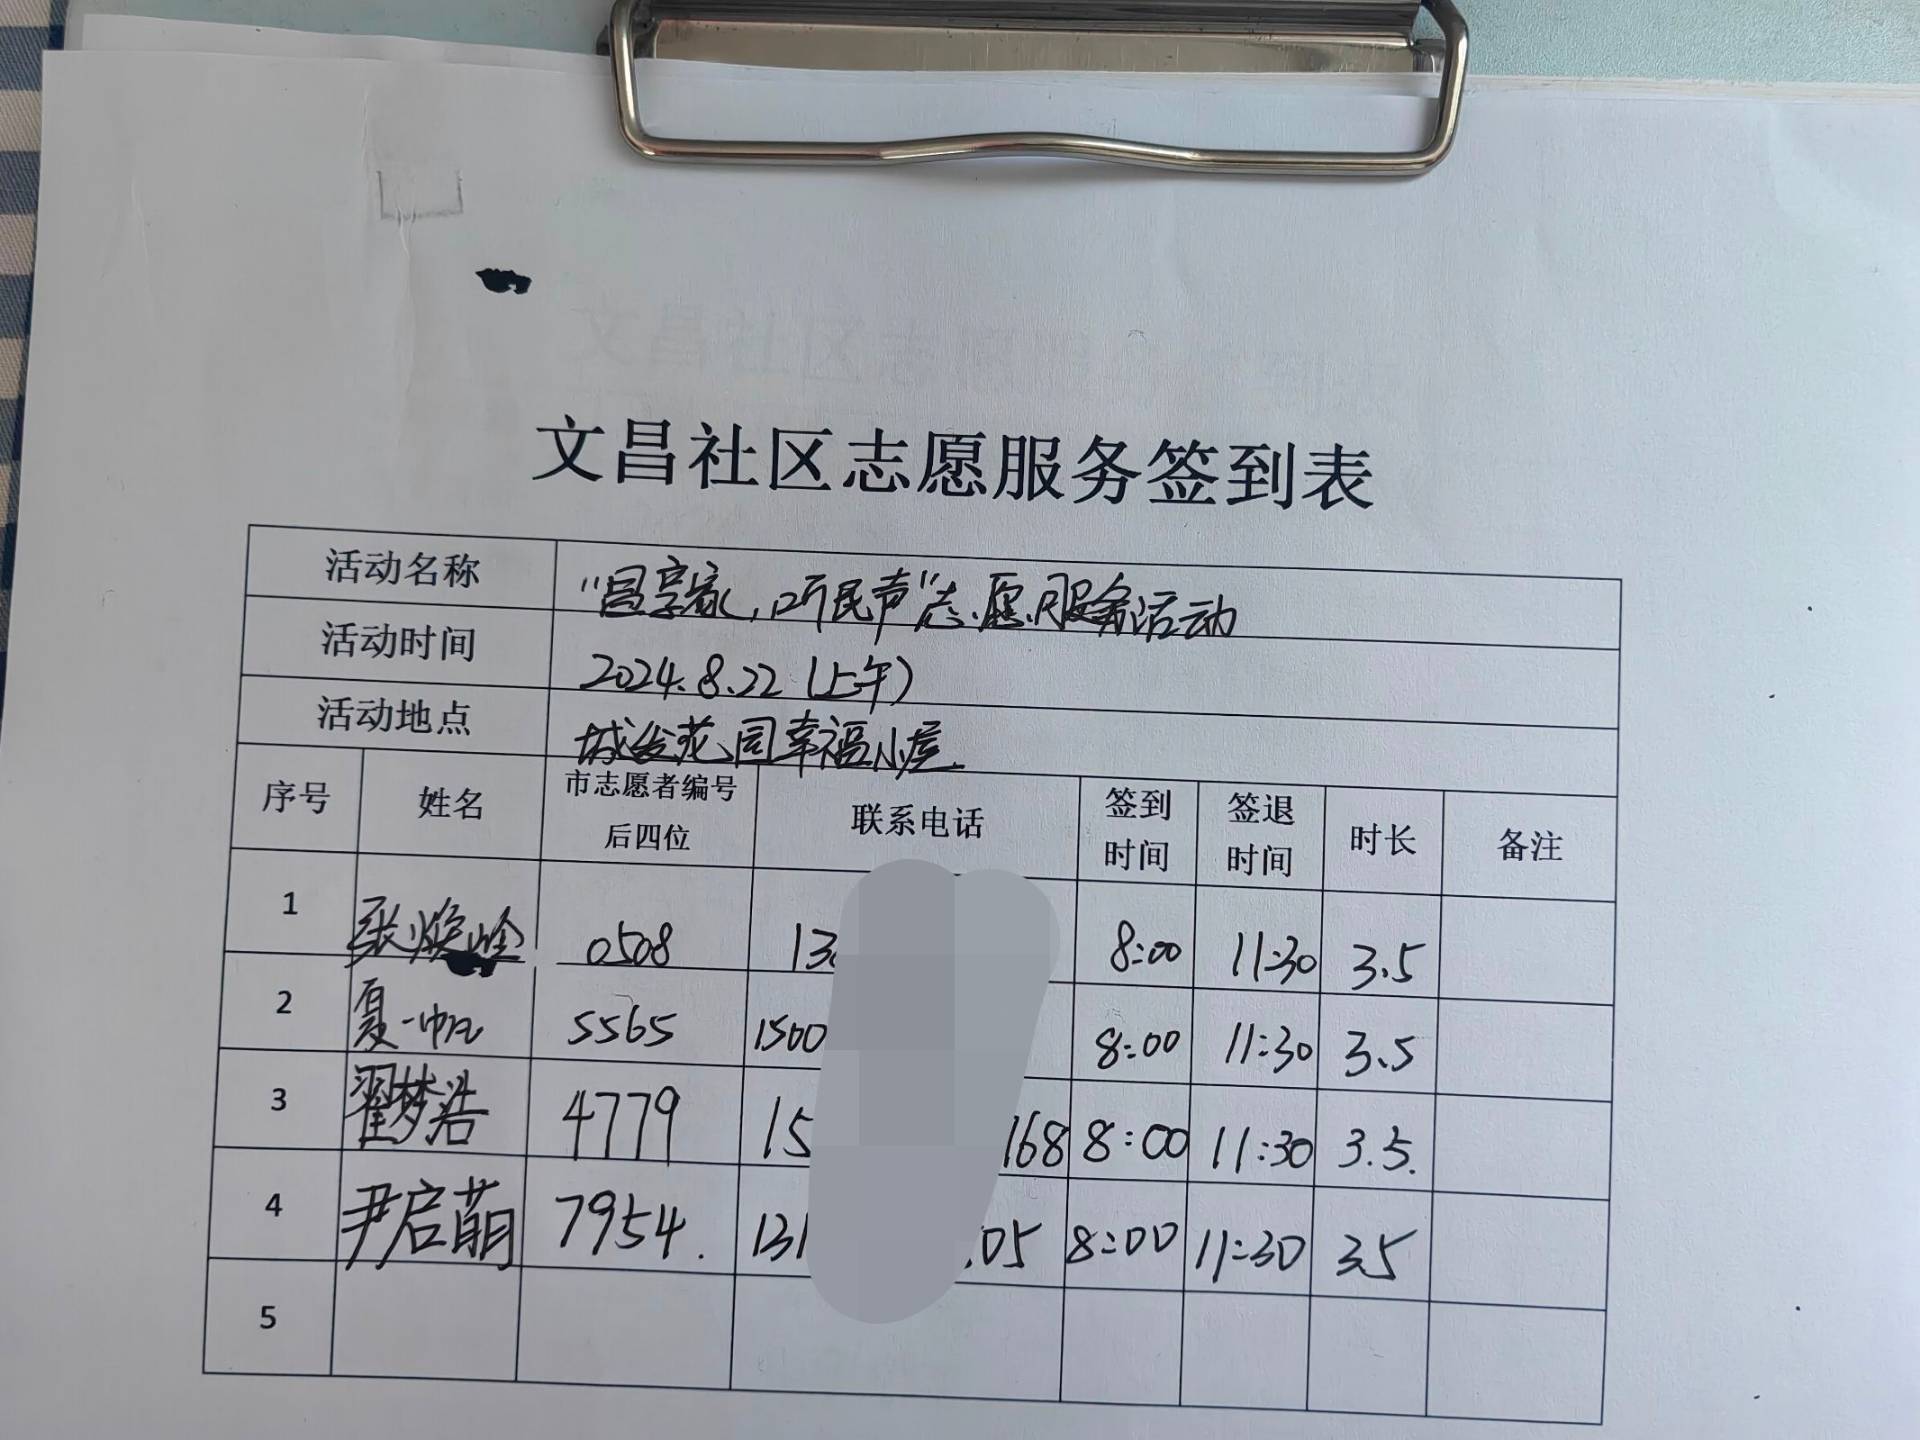 文昌社区志愿服务签到表
活动名称 "昌享家,听民声"志愿服务活动
活动时间 2024.8.22(上午)
活动地点 城发花园幸福小屋
序号 姓名 市志愿者编号后四位 联系电话 签到时间 签退时间 时长 备注
1 张焕 0508 13 8:00 11:30 3.5
2 夏一帆 5565 1500 8:00 11:30 3.5
3 翟梦浩 4779 15 168 8:00 11:30 3.5.
4 尹启萌 7954. 131 05 8:00 11:30 3.5
5